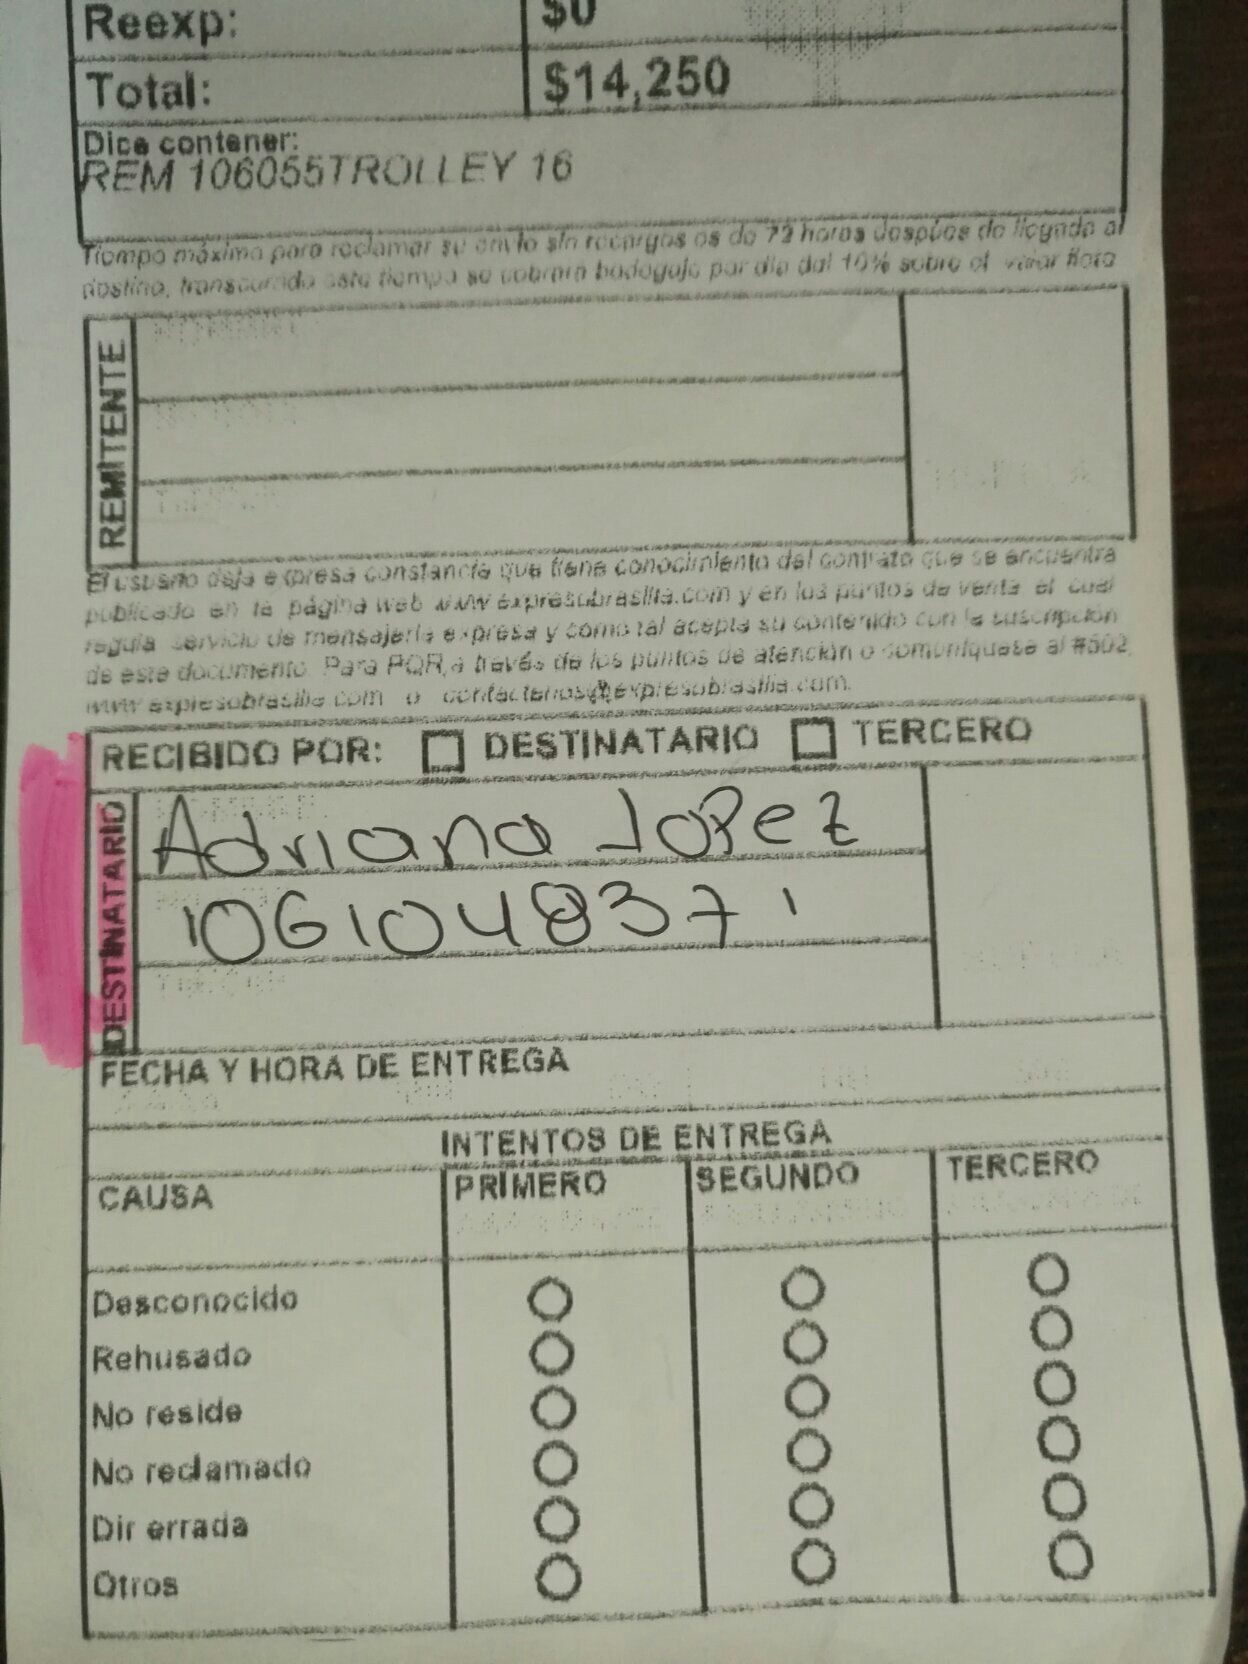 Reexp: $0
Total: $14,250
Dice contener:
REM 106055TROLLEY 16
Tiempo máximo para reclamar su envío sin recargos es de 72 horas después de llegado al
destino, transcurrido este tiempo se cobrara bodegaje por día del 10% sobre el valor flete
REMITENTE
El usuario deja expresa constancia que tiene conocimiento del contrato que se encuentra
publicado en la página web www.expresobrasilia.com y en los puntos de venta el cual
regula servicio de mensajería expresa y como tal acepta su contenido con la suscripción
de este documento. Para PQR, a través de los puntos de atención o comuníquese al #502,
www.expresobrasilia.com o contactenos@expresobrasilia.com.
RECIBIDO POR: DESTINATARIO TERCERO
DESTINATARIO
Adriana Lopez
1061048371
FECHA Y HORA DE ENTREGA
INTENTOS DE ENTREGA
CAUSA PRIMERO SEGUNDO TERCERO
Desconocido
Rehusado
No reside
No reclamado
Dir errada
Otros